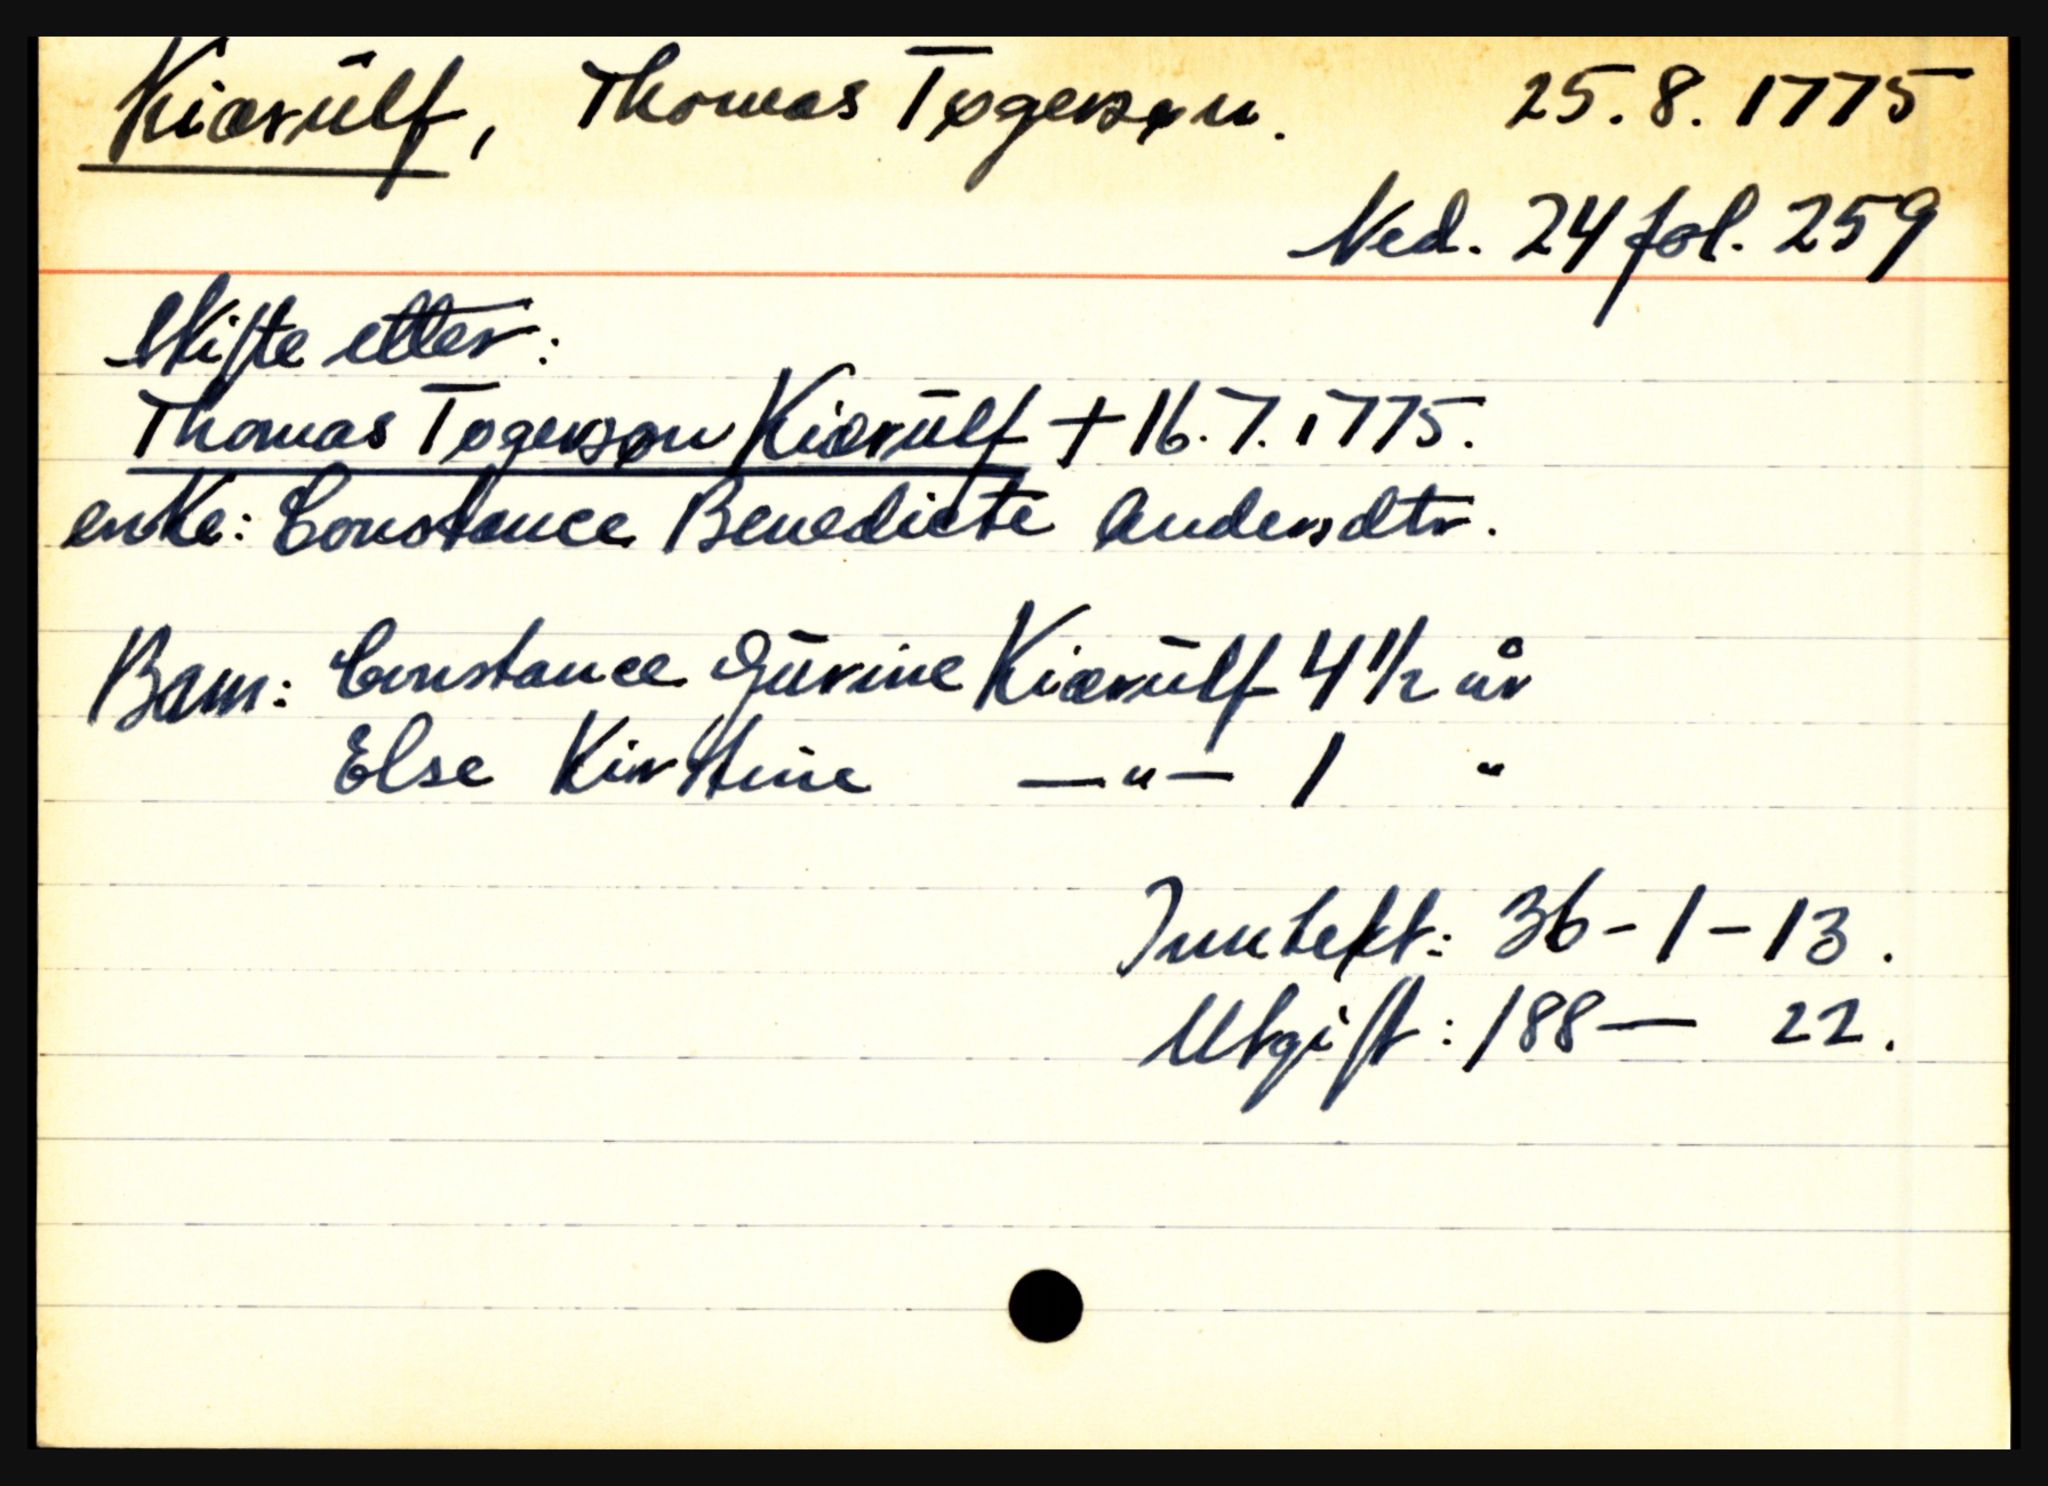 Kiærulf, Thomas Tøgersøn. 25.8.1775
Ned. 24 fol. 259
Skifte etter:
Thomas Tøgersøn Kiærulf + 16.7.1775.
enke: Constance Benedicte Andersdtr.
Barn: Constance Gurine Kiærulf 4 1/2 år
Else Kirstine —"— 1 "
Inntekt: 36-1-13.
Utgift: 188— 22.